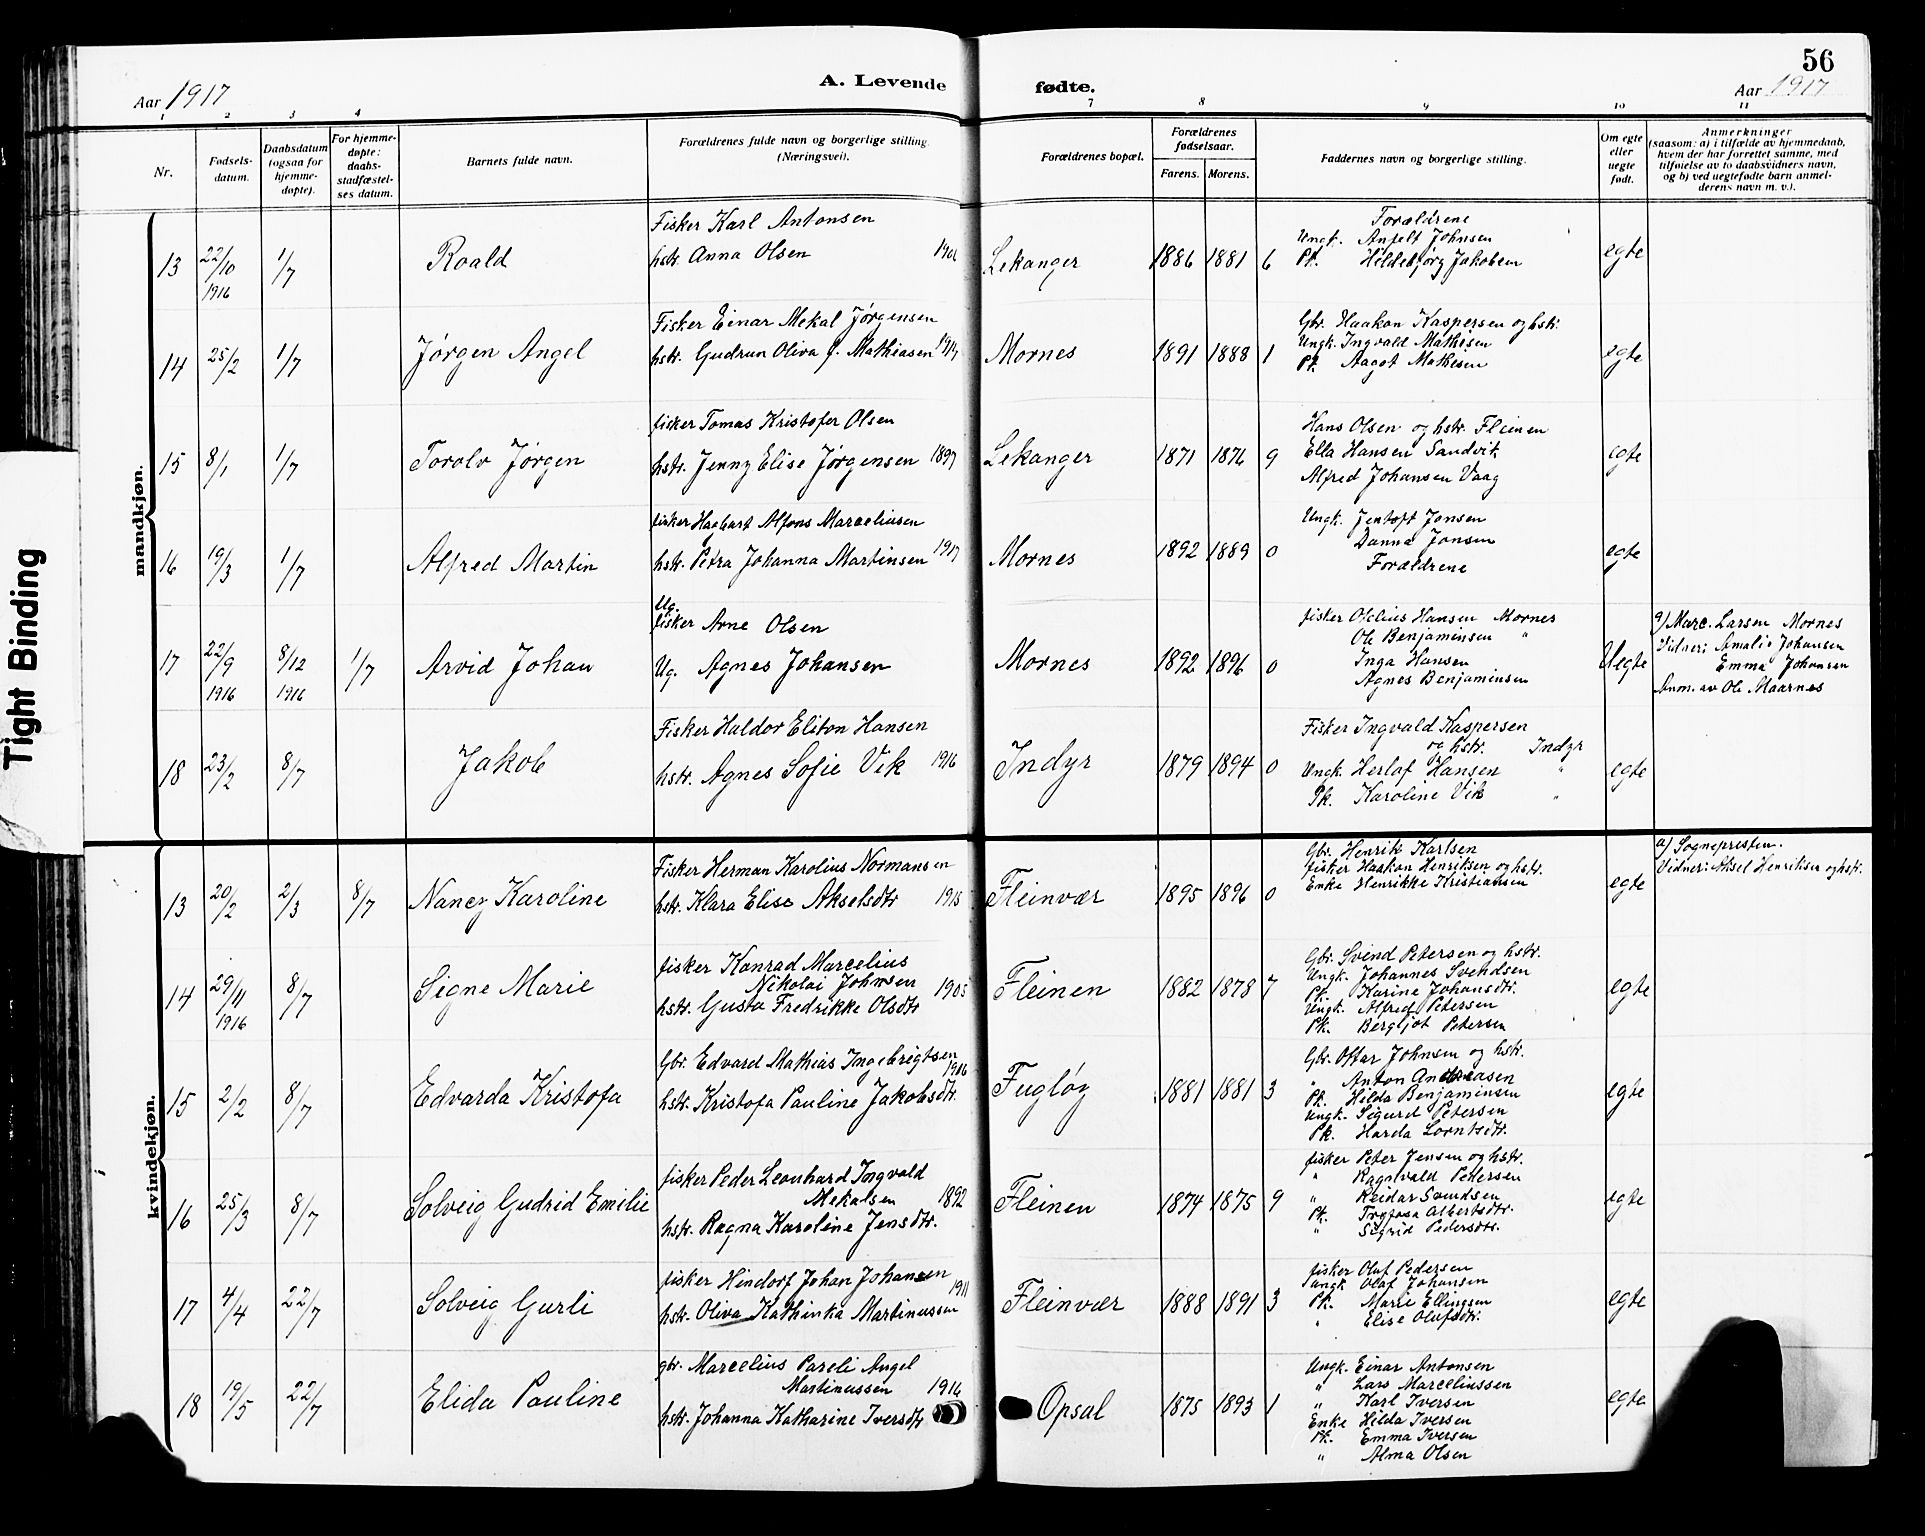 56
Aar 1917
A. Levende fødte.
Aar 1917
1 2 3 4 7 8 9 10 11
Nr.
Fødsels-
datum.
Daabsdatum
(ogsaa for
hjemme-
døpte).
For hjemme-
døpte:
daabs-
stadfæstel-
ses datum.
Barnets fulde navn.
Forældrenes fulde navn og borgerlige stilling.
(Næringsvei).
Forældrenes bopæl.
Forældrenes
fødselsaar.
Farens. Morens.
Faddernes navn og borgerlige stilling.
Om egte
eller
uegte
født.
Anmerkninger
(saasom: a) i tilfælde av hjemmedaab,
hvem der har forrettet samme, med
tilføielse av to daabsvidners navn,
og b) ved uegtefødte barn anmel-
derens navn m. v.).
mandkjøn.
13 22/10 1916 1/7 Roald
Fisker Karl Antonsen
hstr. Anna Olsen
Lekanger 1886 1881 6
Forældrene
Ungk. Anfelt Johnsen
Pk. Hildebjørg Jakobsen
egte
14 25/2 1/7 Jørgen Angel
Fisker Einar Mekal Jørgensen
hstr. Gudrun Oliva J. Mathiasen
Mornes 1891 1888 1
Gbr. Haakon Kaspersen og hstr.
Ungk. Ingvald Mathisen
Pk. Aagot Mathisen
egte
15 8/1 1/7 Torolv Jørgen
fisker Tomas Kristofer Olsen
hstr. Jenny Elise Jørgensen 1897
Lekanger 1871 1876 9
Hans Olsen og hstr. Fleinen
Ella Hansen Sandvik
Alfred Johansen Vaag
egte
16 19/3 1/7 Alfred Martin
fisker Hagbart Alfons Marceliusen
hstr. Petra Johanna Martinsen 1917
Mornes 1892 1889 0
Ungk. Jentoft Jonsen
Danna Jonsen
Forældrene
egte
17 22/9 1916 8/12 1916 1/7 Arvid Johan
Ug.
fisker Arne Olsen
Ug. Agnes Johansen
Mornes 1892 1896 0
fisker Olelius Hansen Mornes
Ole Benjaminsen "
Inga Hansen
Agnes Benjaminsen
Uegte
a) Marc. Larsen Mornes
Vidner: Amalie Johansen
Emma Johansen
Anm. av Ole Maarnes
18 23/2 8/7 Jakob
Fisker Haldor Eliton Hansen
hstr. Agnes Sofie Vik 1916
Indyr 1879 1894 0
Fisker Ingvald Kaspersen
og hstr. Indyr
Ungk. Herlaf Hansen "
Pk. Karoline Vik "
egte
kvindekjøn.
13 20/2 2/3 8/7 Nancy Karoline
Fisker Herman Karolius Normansen
hstr. Klara Elise Akselsdtr 1915
Fleinvær 1895 1896 0
Gbr. Henrik Karlsen
fisker Haakon Henriksen og hstr.
Enke Henrikke Kristiansen
egte
a) Sognepresten.
Vidner: Aksel Henriksen og hstr.
14 29/11 1916 8/7 Signe Marie
fisker Konrad Marcelius
Nikolai Johnsen
hstr. Gusta Fredrikke Olsdtr 1905
Fleinen 1882 1878 7
Gbr. Svend Petersen og hstr.
Ungk. Johannes Svendsen
Pk. Karine Johansdtr.
Ungk. Alfred Petersen
Pk. Bergljot Petersen
egte
15 2/2 8/7 Edvarda Kristofa
Gbr. Edvard Mathias Ingebrigtsen
1906
hstr. Kristofa Pauline Jakobsdtr.
Fugløy 1881 1881 3
Gbr. Ottar Johnsen og hstr.
" Anton Andreasen
Pk. Hilda Benjaminsen
Ungk. Sigurd Petersen
Pk. Harda Lorntsdtr.
egte
16 25/3 8/7 Solveig Gudrid Emilie
fisker Peder Leonhard Ingvald
Mekalsen 1892
hstr. Ragna Karoline Jensdtr.
Fleinen 1874 1875 9
fisker Peter Jensen og hstr.
" Ragnvald Pedersen
" Reidar Svendsen
Pk. Trefosa Albertsdtr.
" Sigrid Pedersdtr.
egte
17 4/4 22/7 Solveig Gurli
fisker Hindorf Johan Johansen
1911
hstr. Oliva Kathinka Martinussen
Fleinvær 1888 1891 3
fisker Oluf Pedersen
Ungk Olaf Johansen
Pk. Marie Ellingsen
" Elise Olufsdtr.
egte
18 19/5 22/7 Elida Pauline
gbr. Marcelius Pareli Angel
Martinussen 1916
hstr. Johanna Katharine Iversdtr
Opsal 1875 1893 1
Ungk. Einar Antonsen
" Lars Marceliussen
" Karl Iversen
Enke Hilda Iversen
Pk. Emma Iversen
" Alma Olsen
egte
Tight Binding